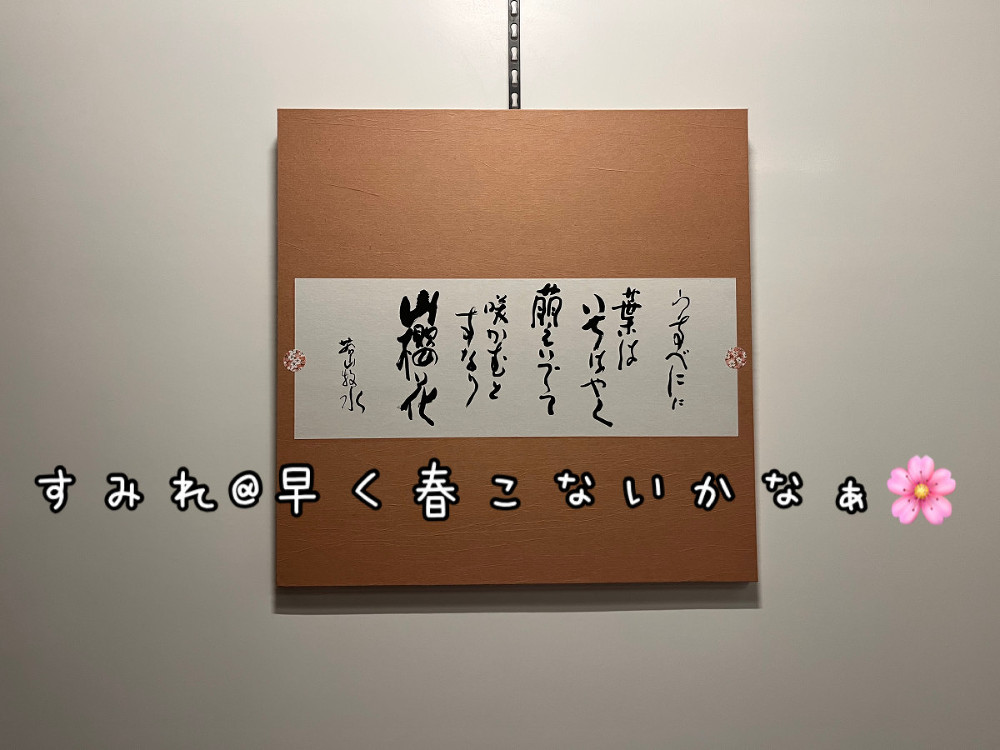 うすべにに
葉は
いちはやく
萠えいでて
咲かむと
すなり
山櫻花
若山牧水
すみれ@早く春こないかなぁ🌸